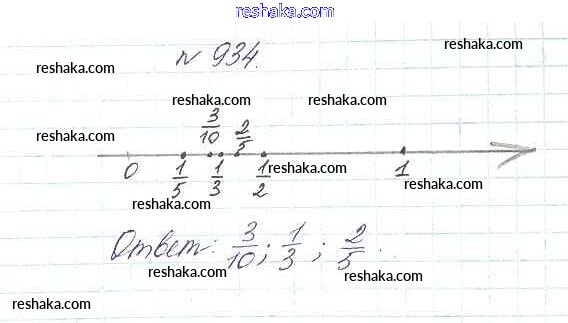 reshaka.com
№ 934.
reshaka.com
reshaka.com
reshaka.com reshaka.com
3/10 2/5
reshaka.com
0 1/5 1/3 1/2 1
reshaka.com
reshaka.com
reshaka.com
Ответ: 3/10; 1/3; 2/5.
reshaka.com
reshaka.com
reshaka.com